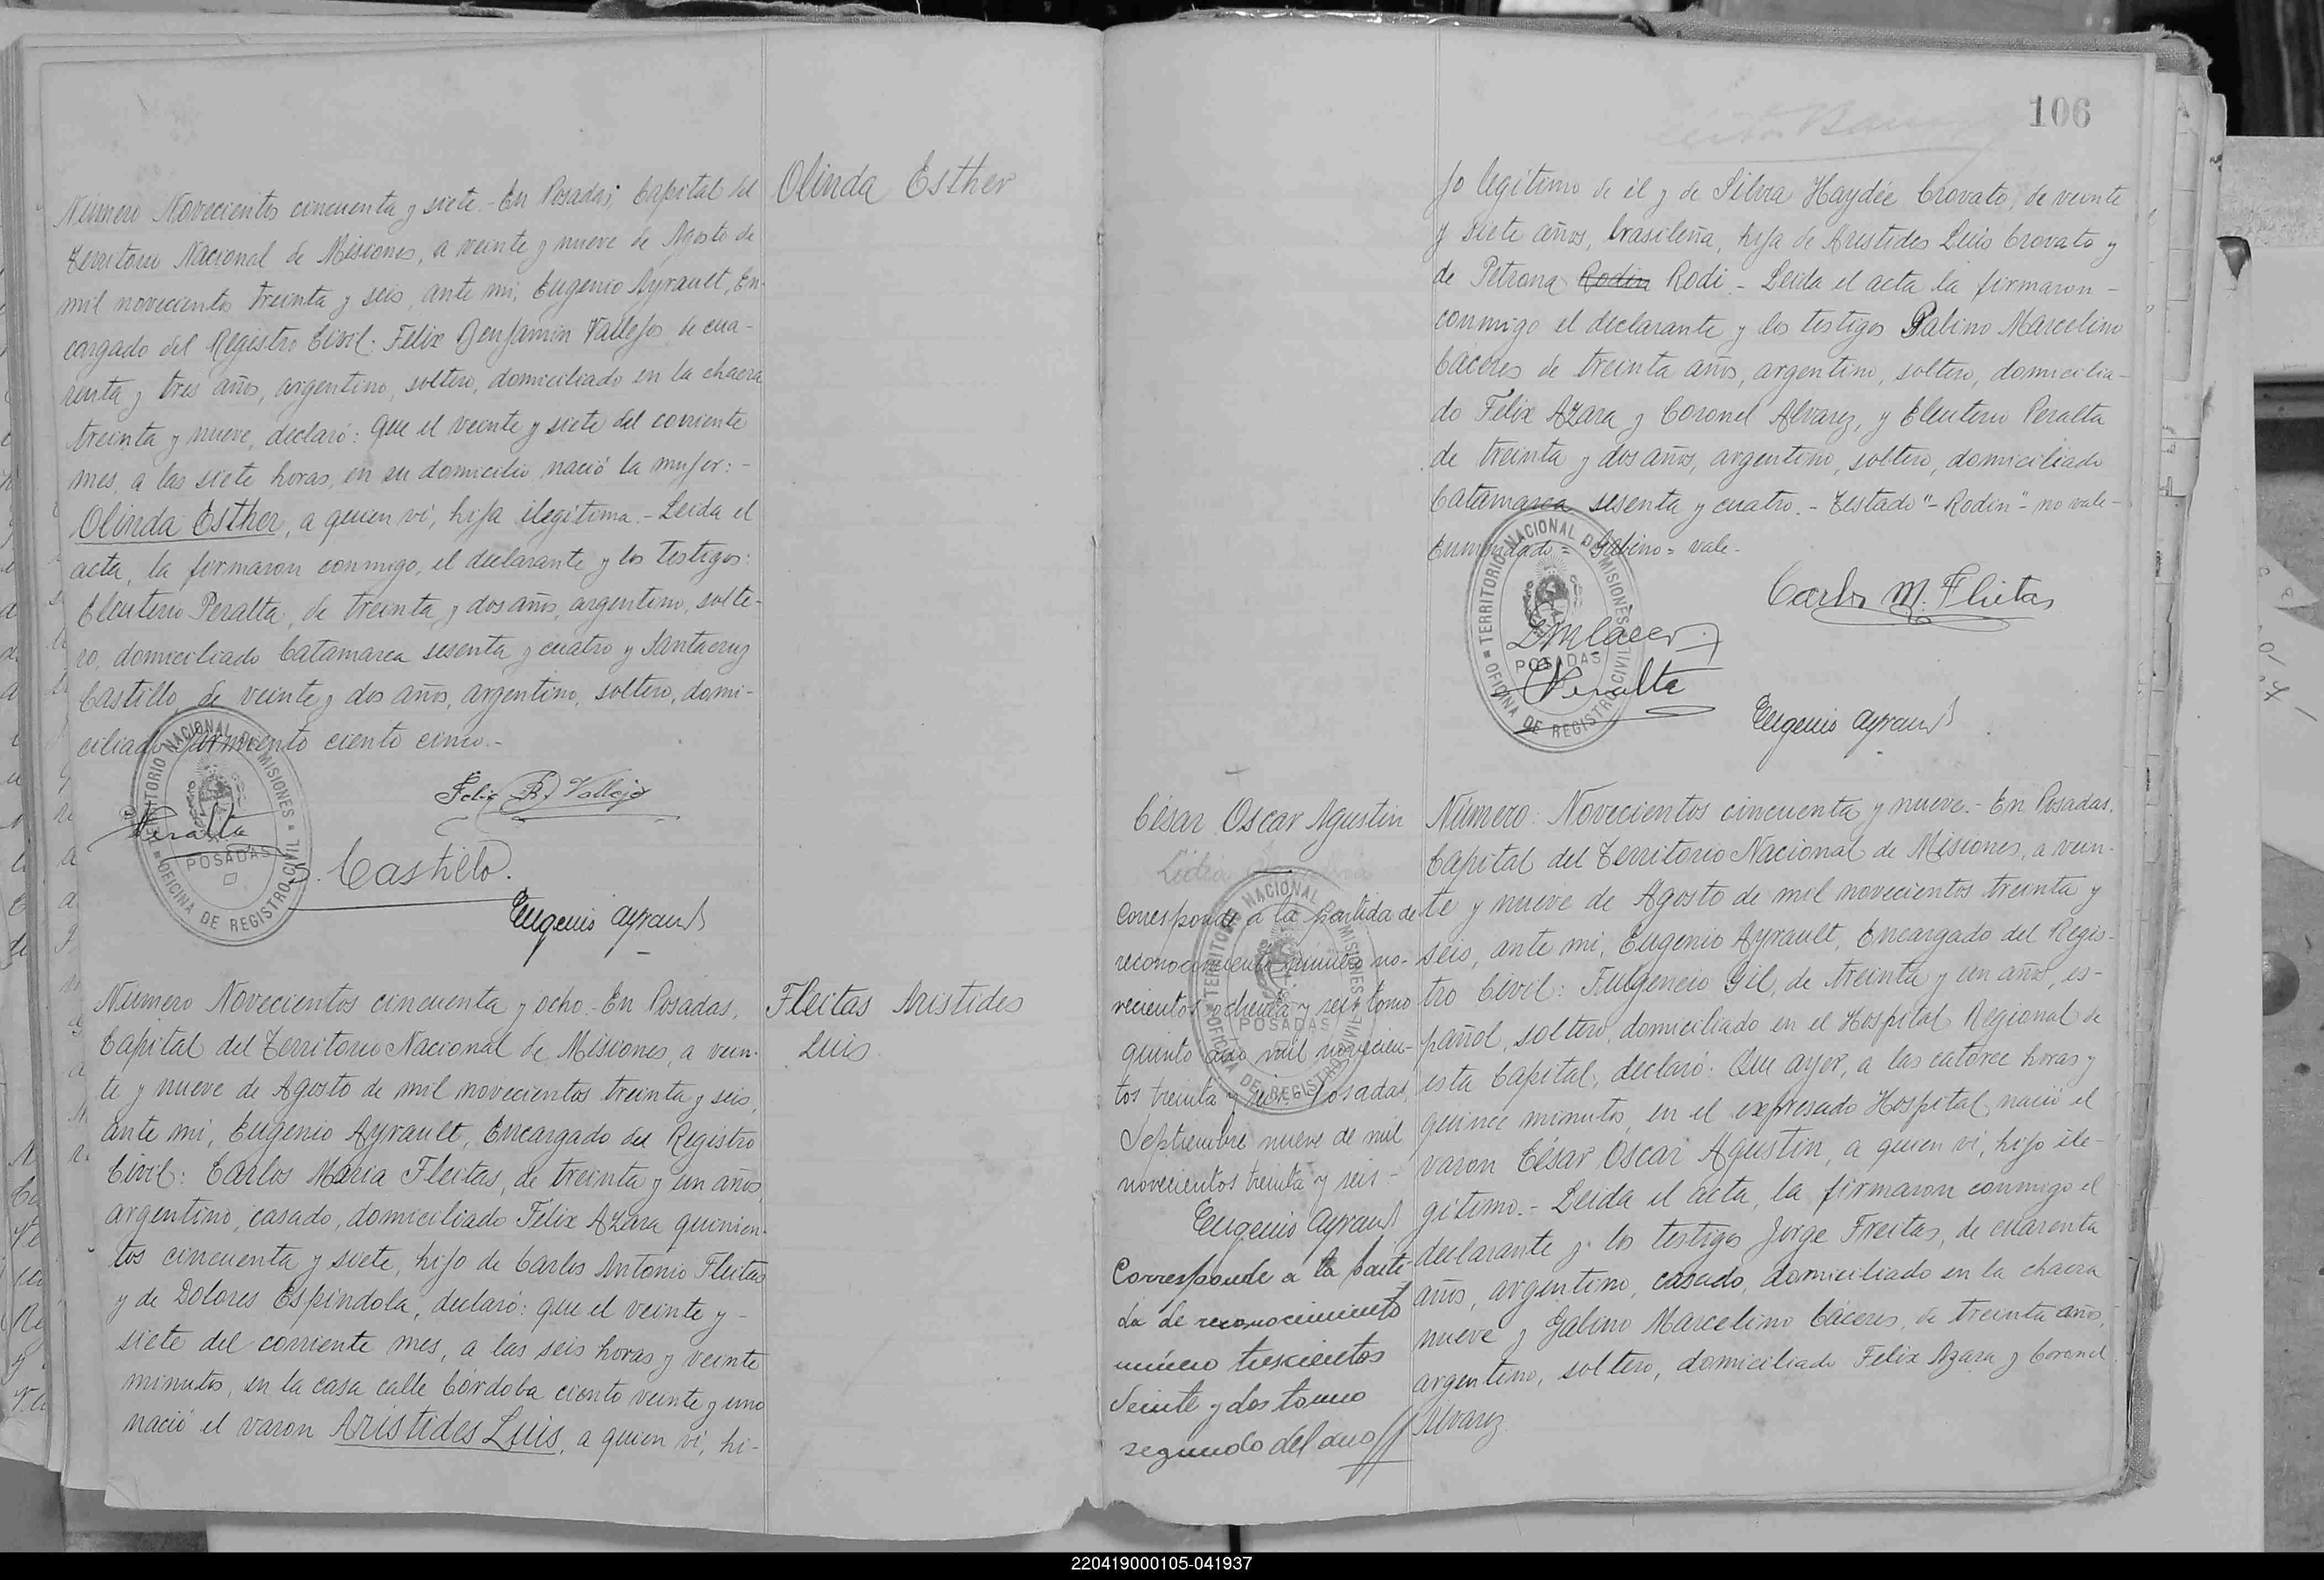 Olinda Esther
Número Novecientos cincuenta y siete.- En Posadas, Capital del
Territorio Nacional de Misiones, a veinte y nueve de Agosto de
mil novecientos treinta y seis, ante mi, Eugenio Ayrault, En-
cargado del Registro Civil: Felix Benjamin Vallejos de cua-
renta y tres años, argentino, soltero, domiciliado en la chacra
treinta y nueve, declaró: que el veinte y siete del corriente
mes, a las siete horas, en su domicilio nació la mujer:-
Olinda Esther, a quien vi, hija ilegítima.- Leida el
acta, la firmaron conmigo, el declarante y los testigos:
Eleuterio Peralta, de treinta y dos años, argentino, solte-
ro, domiciliado Catamarca sesenta y cuatro y Santacruz
Castillo, de veinte y dos años, argentino, soltero, domi-
ciliado Sarmiento ciento cinco.-
Felix B. Vallejos
Peralta
TERRITORIO NACIONAL DE MISIONES
POSADAS
OFICINA DE REGISTRO CIVIL
S. Castillo.
Eugenio Ayrault
Fleitas Aristides
Luis
Número Novecientos cincuenta y ocho.- En Posadas,
Capital del Territorio Nacional de Misiones, a vein-
te y nueve de Agosto de mil novecientos treinta y seis,
ante mi, Eugenio Ayrault, Encargado del Registro
Civil: Carlos Maria Fleitas, de treinta y un años,
argentino, casado, domiciliado Felix Azara quinien-
tos cincuenta y siete, hijo de Carlos Antonio Fleitas
y de Dolores Espindola, declaró: que el veinte y-
siete del corriente mes, a las seis horas y veinte
minutos, en la casa calle Córdoba ciento veinte y uno
nació el varon Aristides Luis, a quien vi, hi-
106
jo legitimo de él y de Silvia Haydée Crovato, de veinte
y siete años, brasileña, hija de Aristides Luis Crovato y
de Petrona Rodin Rodi.- Leida el acta la firmaron-
conmigo el declarante y los testigos Galino Marcelino
Cáceres de treinta años, argentino, soltero, domicilia-
do Felix Azara y Coronel Alvarez, y Eleuterio Peralta
de treinta y dos años, argentino, soltero, domiciliado
Catamarca sesenta y cuatro.- Testado "-Rodin"- no vale-
Enmendado= Gabino= vale.
Carlos M. Fleitas
TERRITORIO NACIONAL DE MISIONES
POSADAS
OFICINA DE REGISTRO CIVIL
Peralta
Eugenio Ayrault
César Oscar Agustin
Corresponde a la partida de
reconocimiento número no-
vecientos ochenta y seis tomo
quinto año mil novecien-
tos treinta y seis. Posadas,
Septiembre nueve de mil
novecientos treinta y seis-
Eugenio Ayrault
Corresponde a la parti-
da de reconocimiento
número trescientos
veinte y dos tomo
segundo del año
TERRITORIO NACIONAL DE MISIONES
POSADAS
OFICINA DE REGISTRO CIVIL
Número: Novecientos cincuenta y nueve.- En Posadas,
Capital del Territorio Nacional de Misiones, a vein-
te y nueve de Agosto de mil novecientos treinta y
seis, ante mi, Eugenio Ayrault, Encargado del Regis-
tro Civil: Fulgencio Gil, de treinta y un años, es-
pañol, soltero, domiciliado en el Hospital Regional de
esta Capital, declaró: Que ayer, a las catorce horas y
quince minutos, en el expresado Hospital, nació el
varon César Oscar Agustin, a quien vi, hijo ile-
gitimo.- Leida el acta, la firmaron conmigo el
declarante y los testigos Jorge Freitas, de cuarenta
años, argentino, casado, domiciliado en la chacra
nueve y Gabino Marcelino Cáceres, de treinta años,
argentino, soltero, domiciliado Felix Azara y Coronel
Alvarez
220419000105-041937